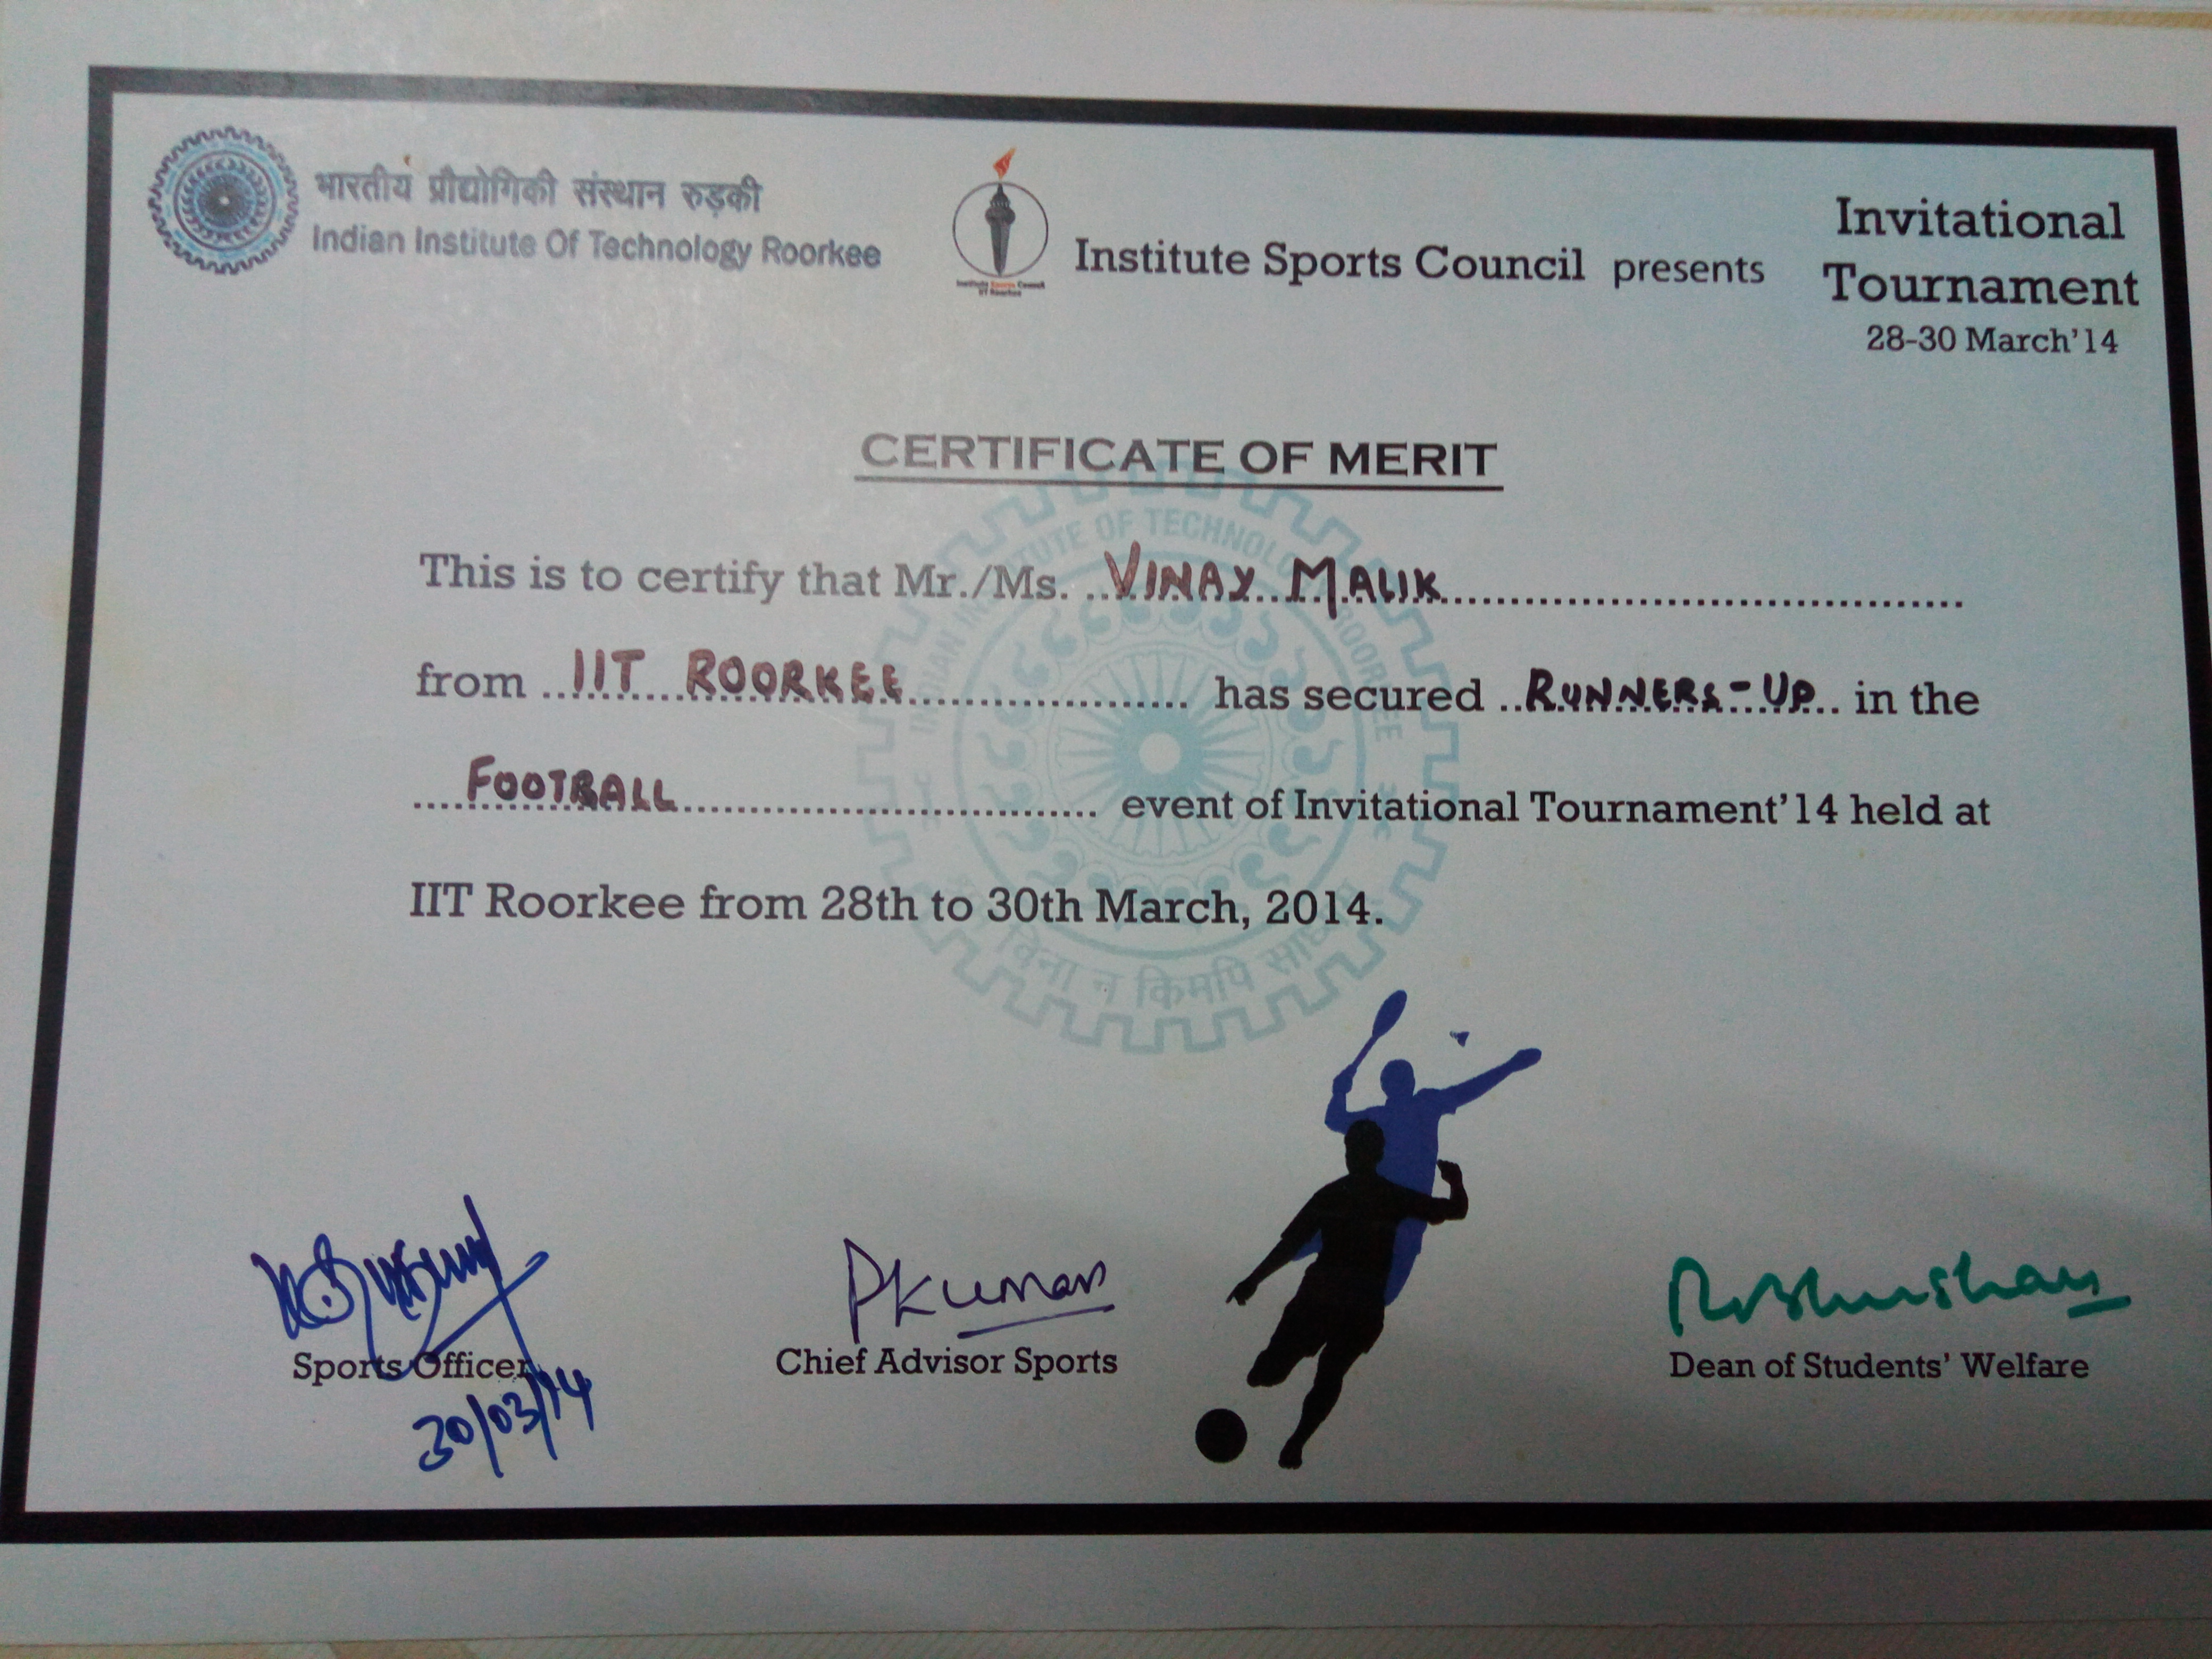 भारतीय प्रौद्योगिकी संस्थान रुड़की
Indian Institute Of Technology Roorkee
Institute Sports Council
IIT Roorkee
Institute Sports Council presents
Invitational
Tournament
28-30 March'14
CERTIFICATE OF MERIT
This is to certify that Mr./Ms. ..VINAY MALIK..........
from ...IIT ROORKEE.......... has secured ..RUNNERS-UP.. in the
....FOOTBALL.......... event of Invitational Tournament'14 held at
IIT Roorkee from 28th to 30th March, 2014.
INDIAN INSTITUTE OF TECHNOLOGY ROORKEE
विना न किमपि
PKumar
Sports Officer
Chief Advisor Sports
Dean of Students' Welfare
30/03/14